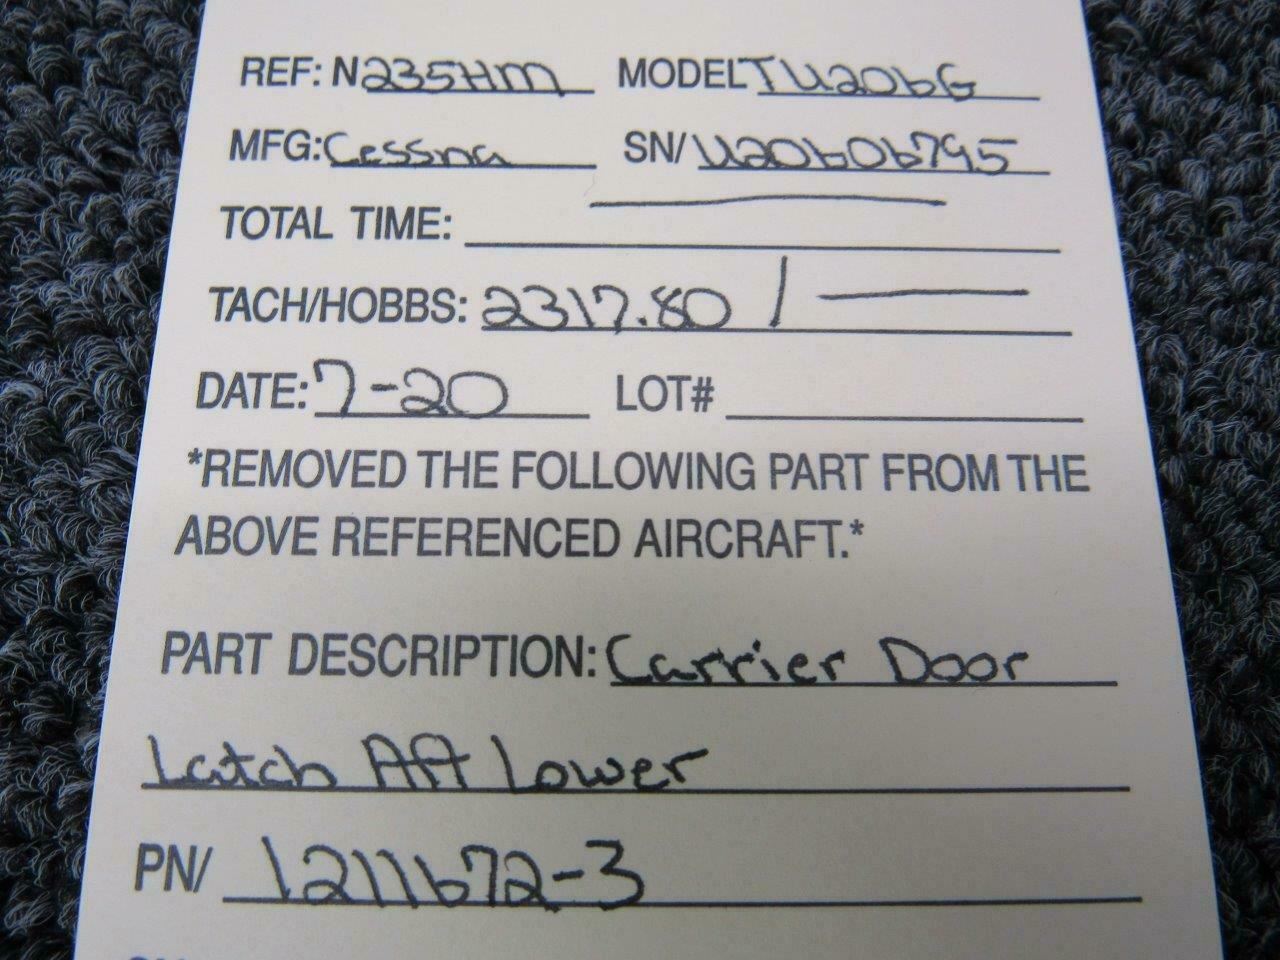 REF: N235HM MODEL TU206G
MFG: Cessna SN/ U20606795
TOTAL TIME:
TACH/HOBBS: 2317.80 /
DATE: 7-20 LOT#
*REMOVED THE FOLLOWING PART FROM THE
ABOVE REFERENCED AIRCRAFT.*
PART DESCRIPTION: Carrier Door
Latch Aft Lower
PN/ 1211672-3